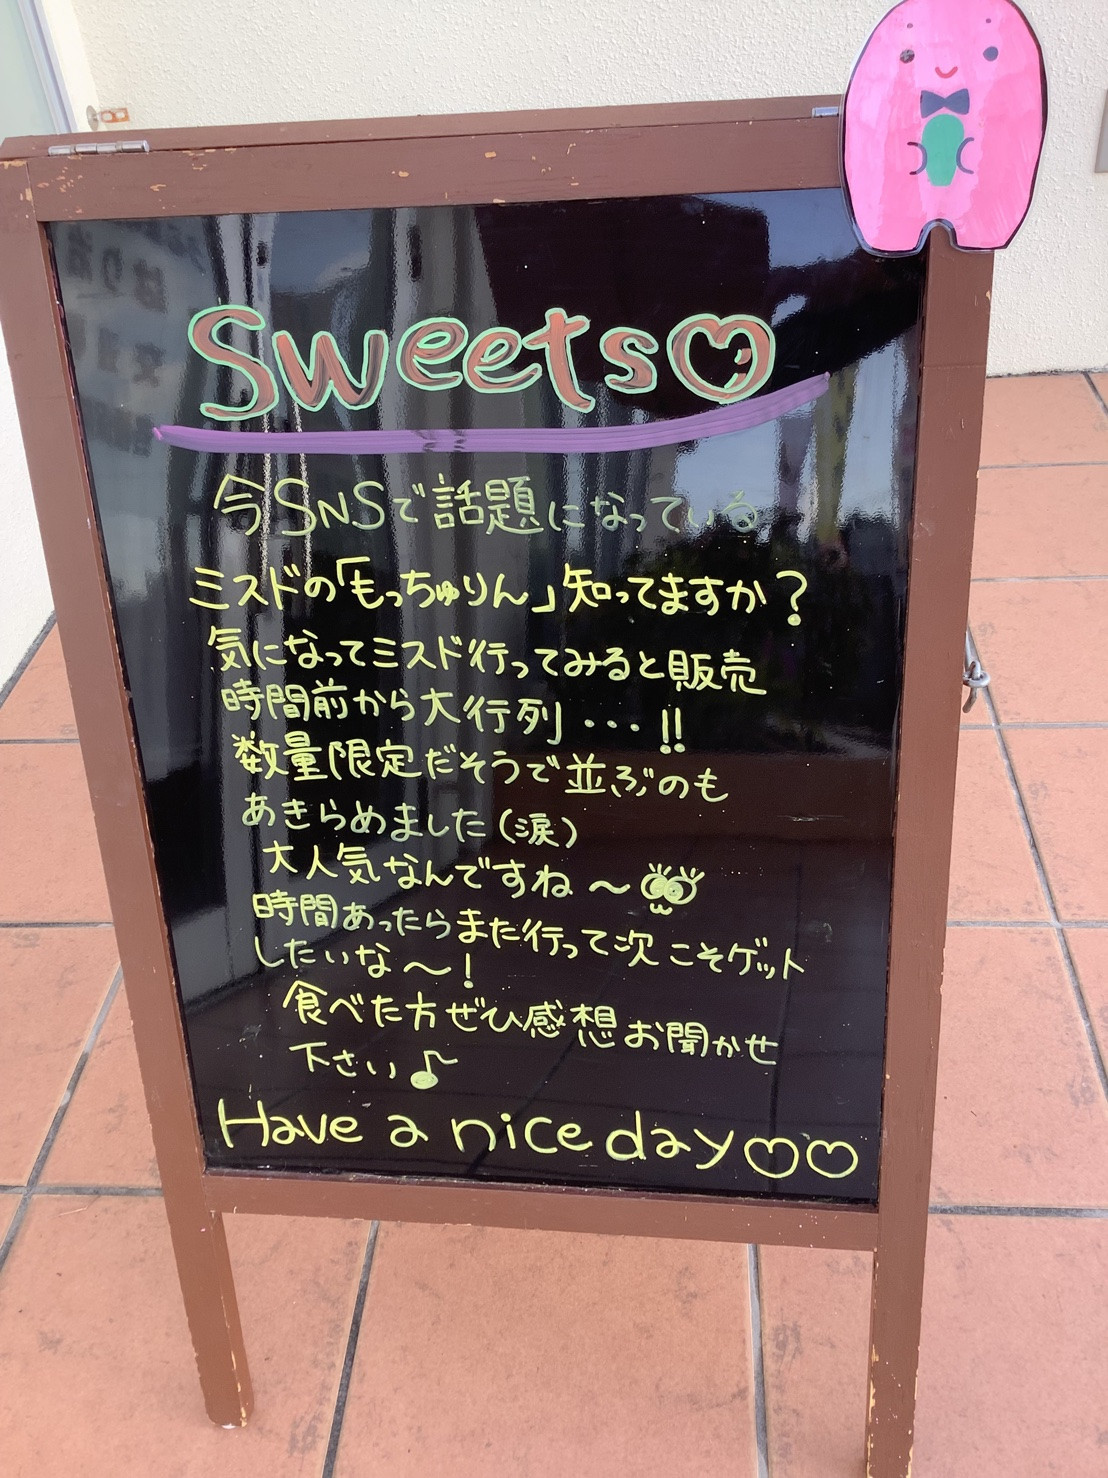 Sweets♡
今SNSで話題になっている
ミスドの「もっちゅりん」知ってますか?
気になってミスド行ってみると販売
時間前から大行列・・・!!
数量限定だそうで並ぶのも
あきらめました(涙)
大人気なんですね～
時間あったらまた行って次こそゲット
したいな～!
食べた方ぜひ感想お聞かせ
下さい♪
Have a nice day♡♡